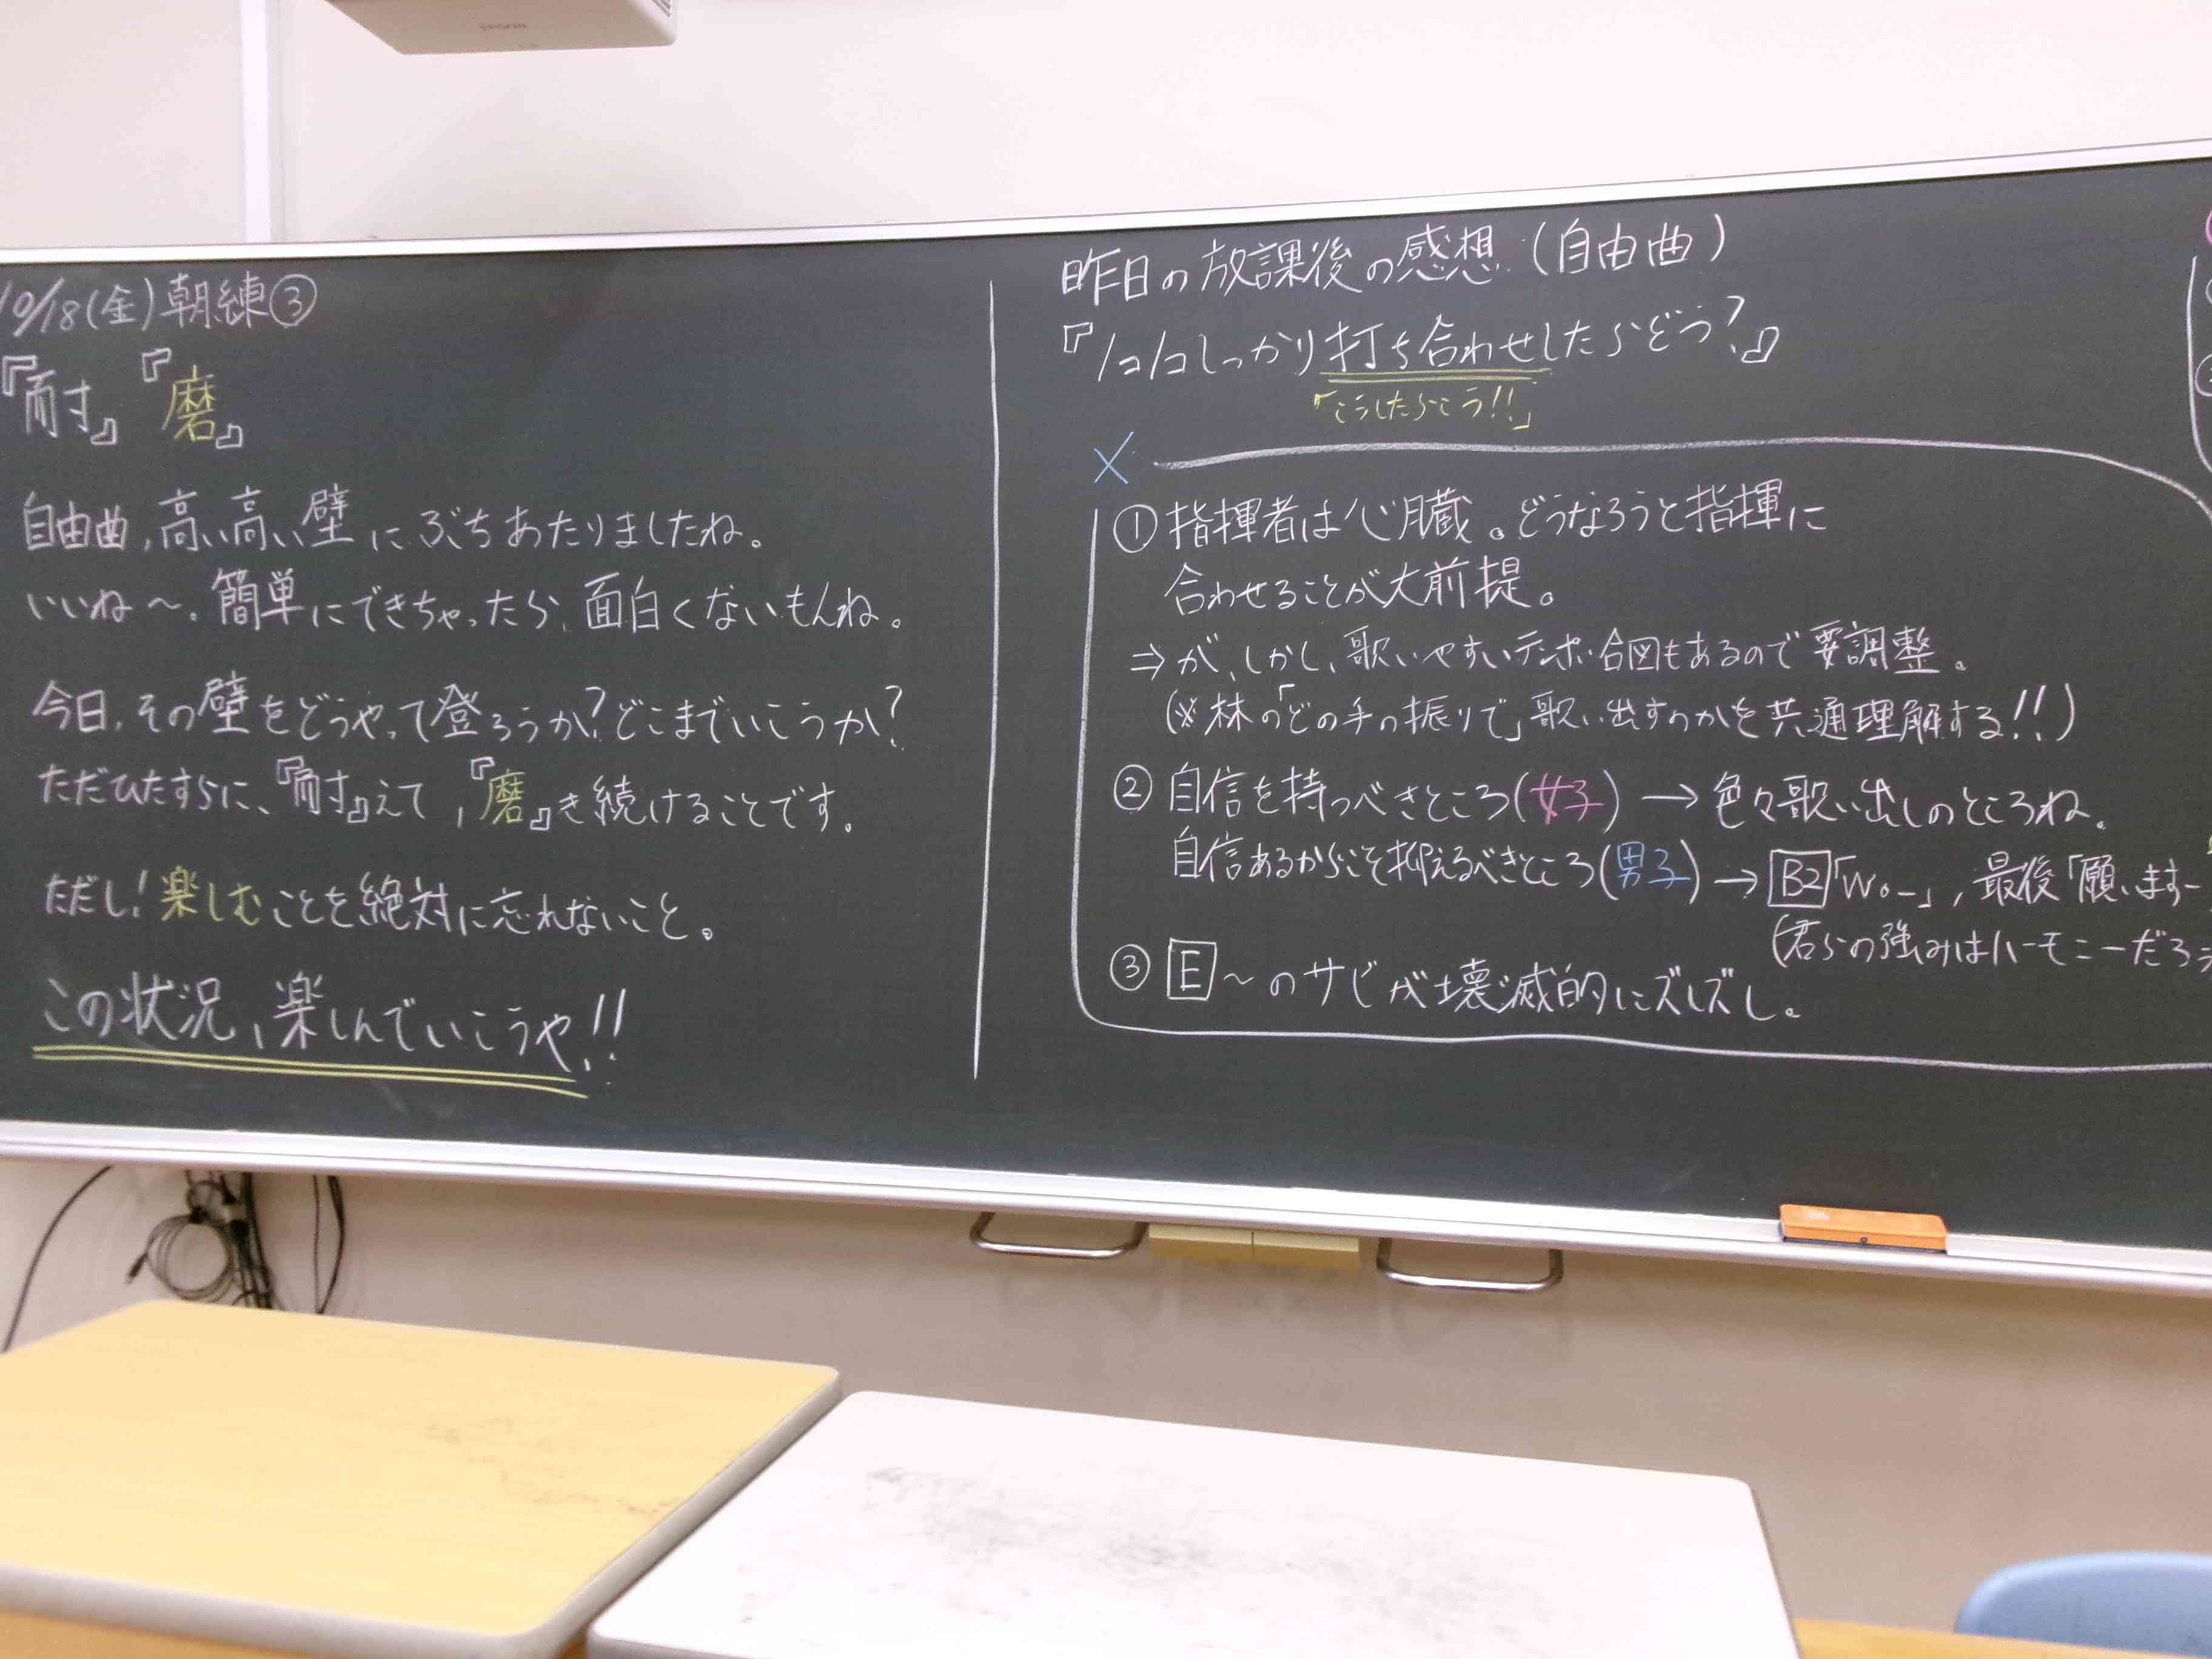 EPSON
10/18(金)朝練③
『耐』『磨』
自由曲、高い高い壁にぶちあたりましたね。
いいね～。簡単にできちゃったら、面白くないもんね。
今日、その壁をどうやって登ろうか?どこまでいこうか?
ただひたすらに、『耐』えて、『磨』き続けることです。
ただし!楽しむことを絶対に忘れないこと。
この状況、楽しんでいこうや!!
昨日の放課後の感想(自由曲)
しっかり打ち合わせしたらどう?』
「こうしたらこう!!」
×
①指揮者は心臓。どうなろうと指揮に
合わせることが大前提。
⇒が、しかし、歌いやすいテンポ・合図もあるので要調整。
(※林の「どの手の振りで」歌い出すのかを共通理解する!!)
②自信を持つべきところ(女子)→色々歌い出しのところね。
自信あるからこそ抑えるべきところ(男子)→B2「Wo-」,最後「願いますー
(君らの強みはハーモニーだろう
③E～のサビが壊滅的にズレズレ。